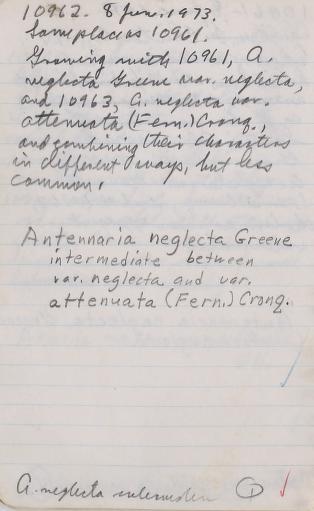 10962. 8 Jun. 1973.
Same place as 10961.
Growing with 10961, A.
neglecta Greene var. neglecta,
and 10963, A. neglecta var.
attenuata (Fern.) Cronq.,
and combining their characters
in different ways, but less
common.
Antennaria neglecta Greene
intermediate between
var. neglecta and var.
attenuata (Fern.) Cronq.
A. neglecta ①